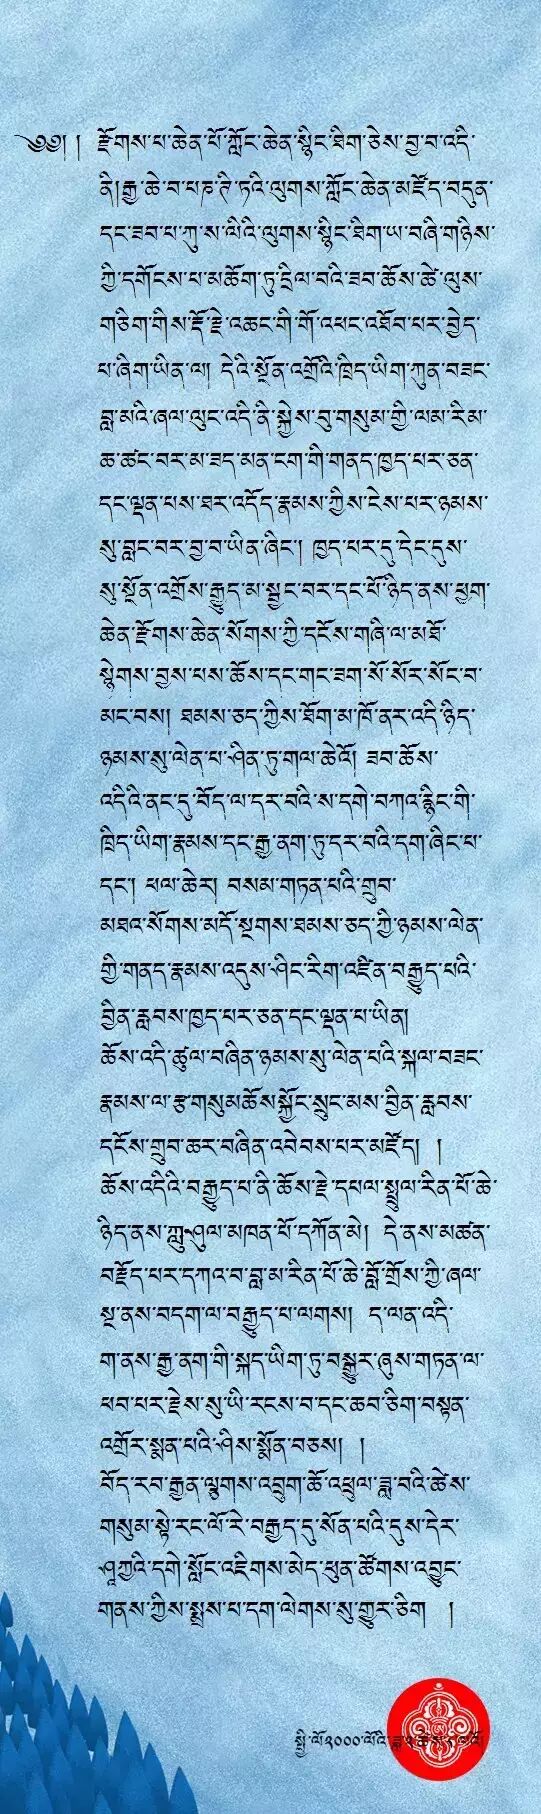 ༄༅། །རྫོགས་པ་ཆེན་པོ་ཀློང་ཆེན་སྙིང་ཐིག་ཅེས་བྱ་བ་འདི་
ནི།རྒྱ་ཆེ་བ་པཎ་ཌི་ཏའི་ལུགས་ཀློང་ཆེན་མཛོད་བདུན་
དང་ཟབ་པ་ཀུ་ས་ལིའི་ལུགས་སྙིང་ཐིག་ཡ་བཞི་གཉིས་
ཀྱི་དགོངས་པ་མཆོག་ཏུ་དྲིལ་བའི་ཟབ་ཆོས་ཚེ་ལུས་
གཅིག་གིས་རྡོ་རྗེ་འཆང་གི་གོ་འཕང་འཐོབ་པར་བྱེད་
པ་ཞིག་ཡིན་ལ། དེའི་སྔོན་འགྲོའི་ཁྲིད་ཡིག་ཀུན་བཟང་
བླ་མའི་ཞལ་ལུང་འདི་ནི་སྐྱེས་བུ་གསུམ་གྱི་ལམ་རིམ་
ཆ་ཚང་བར་མ་ཟད་མན་ངག་གི་གནད་ཁྱད་པར་ཅན་
དང་ལྡན་པས་ཐར་འདོད་རྣམས་ཀྱིས་ངེས་པར་ཉམས་
སུ་བླང་བར་བྱ་བ་ཡིན་ཞིང་། ཁྱད་པར་དུ་དེང་དུས་
སུ་སྔོན་འགྲོས་རྒྱུད་མ་སྦྱང་བར་དང་པོ་ཉིད་ནས་ཕྱག་
ཆེན་རྫོགས་ཆེན་སོགས་ཀྱི་དངོས་གཞི་ལ་མཐོ་
སྙེགས་བྱས་པས་ཆོས་དང་གང་ཟག་སོ་སོར་སོང་བ་
མང་བས། ཐམས་ཅད་ཀྱིས་ཐོག་མ་ཁོ་ནར་འདི་ཉིད་
ཉམས་སུ་ལེན་པ་ཤིན་ཏུ་གལ་ཆེའོ། ཟབ་ཆོས་
འདིའི་ནང་དུ་བོད་ལ་དར་བའི་ས་དགེ་བཀའ་རྙིང་གི་
ཁྲིད་ཡིག་རྣམས་དང་རྒྱ་ནག་ཏུ་དར་བའི་དག་ཞིང་པ་
དང་། ཕལ་ཆེར། བསམ་གཏན་པའི་གྲུབ་
མཐའ་སོགས་མདོ་སྔགས་ཐམས་ཅད་ཀྱི་ཉམས་ལེན་
གྱི་གནད་རྣམས་འདུས་ཤིང་རིག་འཛིན་བརྒྱུད་པའི་
བྱིན་རླབས་ཁྱད་པར་ཅན་དང་ལྡན་པ་ཡིན།
ཆོས་འདི་ཚུལ་བཞིན་ཉམས་སུ་ལེན་པའི་སྐལ་བཟང་
རྣམས་ལ་རྩ་གསུམ་ཆོས་སྐྱོང་སྲུང་མས་བྱིན་རླབས་
དངོས་གྲུབ་ཆར་བཞིན་འབེབས་པར་མཛོད། །
ཆོས་འདིའི་བརྒྱུད་པ་ནི་ཆོས་རྗེ་དཔལ་སྤྲུལ་རིན་པོ་ཆེ་
ཉིད་ནས་ཀླུ་ཤུལ་མཁན་པོ་དཀོན་མེ། དེ་ནས་མཚན་
བརྗོད་པར་དཀའ་བ་བླ་མ་རིན་པོ་ཆེ་བློ་གྲོས་ཀྱི་ཞལ་
སྔ་ནས་བདག་ལ་བརྒྱུད་པ་ལགས། ད་ལན་འདི་
ག་ནས་རྒྱ་ནག་གི་སྐད་ཡིག་ཏུ་བསྒྱུར་ཞུས་གཏན་ལ་
ཕབ་པར་རྗེས་སུ་ཡི་རངས་བ་དང་ཆབ་ཅིག་བསྟན་
འགྲོར་སྨན་པའི་ཤིས་སྨོན་བཅས། །
བོད་རབ་རྒྱན་ལྕགས་འབྲུག་ཆོ་འཕྲུལ་ཟླ་བའི་ཚེས་
གསུམ་སྟེ་རང་ལོ་རེ་བརྒྱད་དུ་སོན་པའི་དུས་དེར་
ཤཱཀྱའི་དགེ་སློང་འཇིགས་མེད་ཕུན་ཚོགས་འབྱུང་
གནས་ཀྱིས་སྨྲས་པ་དག་ལེགས་སུ་གྱུར་ཅིག །
སྤྱི་ལོ༢༠༠༠་ལོའི་ཟླ་